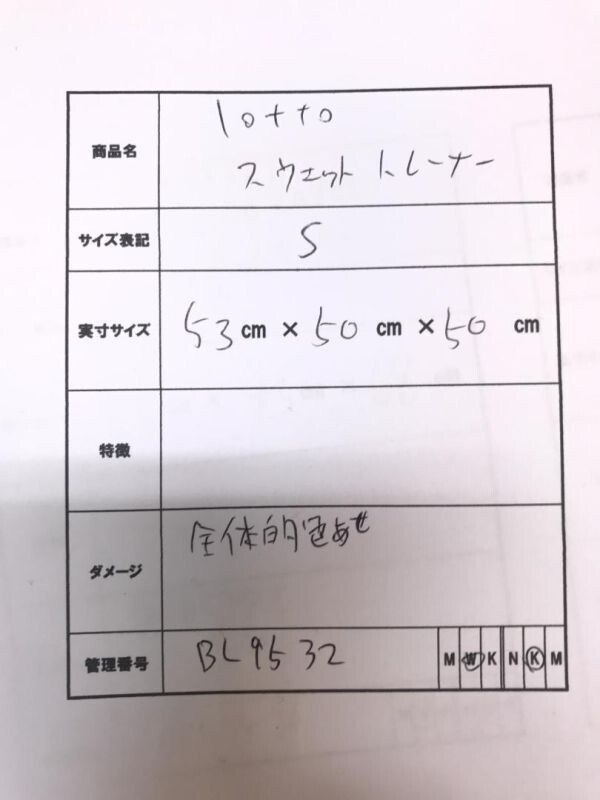 商品名
lotto
スウェット トレーナー
サイズ表記 S
実寸サイズ 53 cm × 50 cm × 50 cm
特徴
ダメージ 全体的色あせ
管理番号 BL9532 M W K N K M